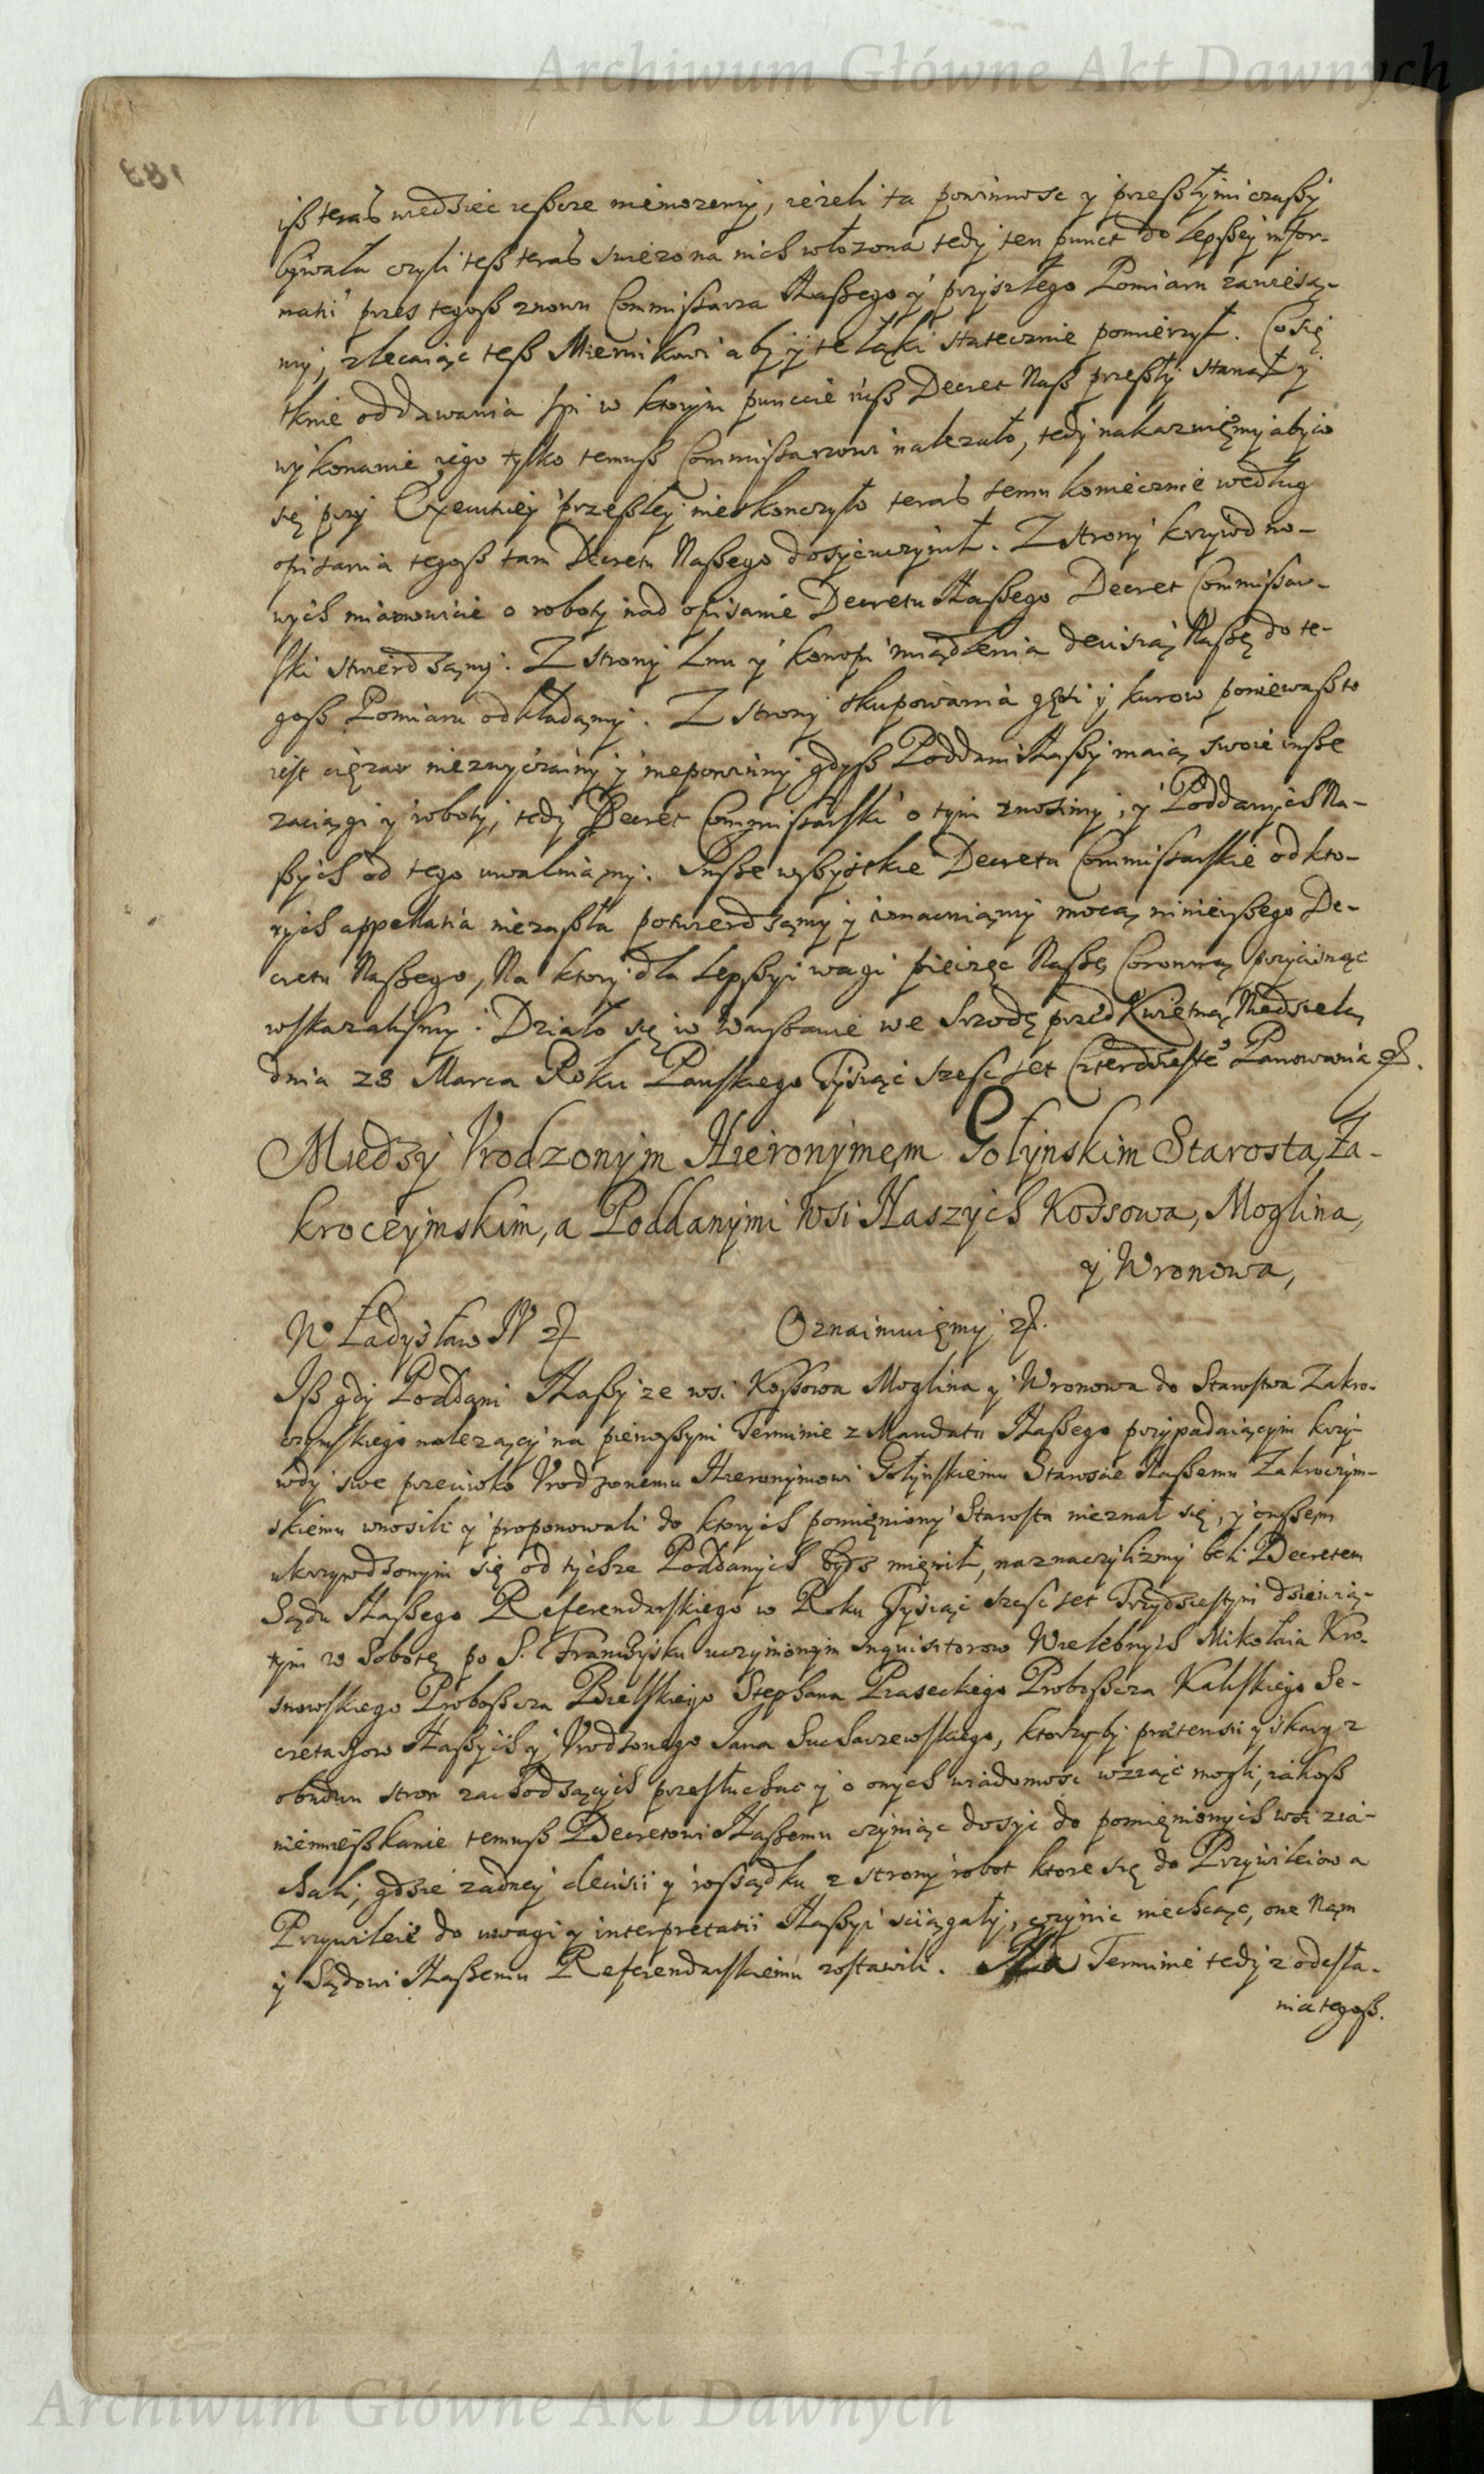 Archiwum Główne Akt Dawnych
iß teraß wiedzieć ieszcze niemożemy, ieżeli ta powinnosc y przeßłymi czaßy
bywała czyli teß teraß swieżo na nich włożona tedy ten punct do lepßey infor-
matii przes tegoß znowu Commissarza Naßego y przyszłego Pomiaru zawiesza-
my, zlecaiąc teß Miernikowi aby y te Łąki statecznie pomierzył. Co się
tknie oddawania spi w ktorym punccie iuß Decret Naß przeßły stanął y
wykonanie iego tylko temuß Commissarzowi należało, tedy nakazuięmy aby co
się przy Executiey przeßłey nieskonczyło teraß temu koniecznie według
opisania tegoß tam Decretu Naßego dosyćuczynił. Z strony krzywd no-
wych mianowicie o roboty nad opisanie Decretu Naßego Decret Commissar-
ski stwierdzamy. Z strony Lnu y konopi miądlenia decisią Naßę do te-
goß Pomiaru odkładamy. Z strony skupowania gęsi y kurow ponieważ to
iest ciężar niezwyczainy y niepowinny gdyß Poddani Naßy maią swoie inße
zaciągi y roboty, tedy Decret Commissarski o tym znosimy, y Poddanych Na-
ßych od tego uwalniamy. Inße wßystkie Decreta Commissarskie od kto-
rych appellatia niezaßła potwierdzamy y wmacniamy mocą ninieyßego De-
cretu Naßego, Na ktory dla lepßyi wagi pieczęc Naßę Coronną przycisnąc
wskazalismy. Działo się w Warßawie we Srzodę przed Kwietną Niedzielą
dnia 28 Marca Roku Panskiego Tysiąc szesc set Czterdzieste Panowania
Miedzy Vrodzonym Hieronymem Gołynskim Starostą Za-
kroczymskim, a Poddanymi wsi Naszych Kossowa, Moglina,
y Wronowa,
Władysław IV
Oznaimuięmy
Iß gdy Poddani Naßy ze wsi Koßowa Moglina y Wronowa do Starostwa Zakro-
czymskiego należący na pierwßym Terminie z Mandatu Naßego przypadaiącym krzy-
wdy swe przeciwko Vrodzonemu Hieronymowi Gołynskiemu Staroscie Naßemu Zakroczym-
skiemu wnosili y proponowali do ktorych pomięniony Starosta nieznał się, y owßem
ukrzywdzonym się od tychże Poddanych bydz mięnił, naznaczylismy beli Decretem
Sądu Naßego Referendarskiego w Roku Tysiąc szesc set Trzydziestym dziewią-
tym w Sobotę po S. Franciszku uczynionym Inquisitorow Wielebnych Mikołaia Kro-
snowskiego Proboßcza Bielskiego Stephana Piaseckiego Proboßcza Kaliskiego Se-
cretarzow Naßych y Vrodzonego Jana Sucharzewskiego, ktorzyby praetensii y skarg z
obudwu stron zachodzących przesłuchac y o onych wiadomosc wziąć mogli, iakoß
niemießkanie temuß Decretowi Naßemu czyniąc dosyć do pomięnionych wsi zia-
chali, gdzie żadney decisii y roßądku z strony robot ktore się do Przywileiow a
Przywileie do uwagi y interpretatii Naßyi sciągały, czynic niechcąc, one Nam
y Sądowi Naßemu Referendarskiemu zostawili. Na Terminie tedy z odesła-
nia tegoß.
Archiwum Główne Akt Dawnych